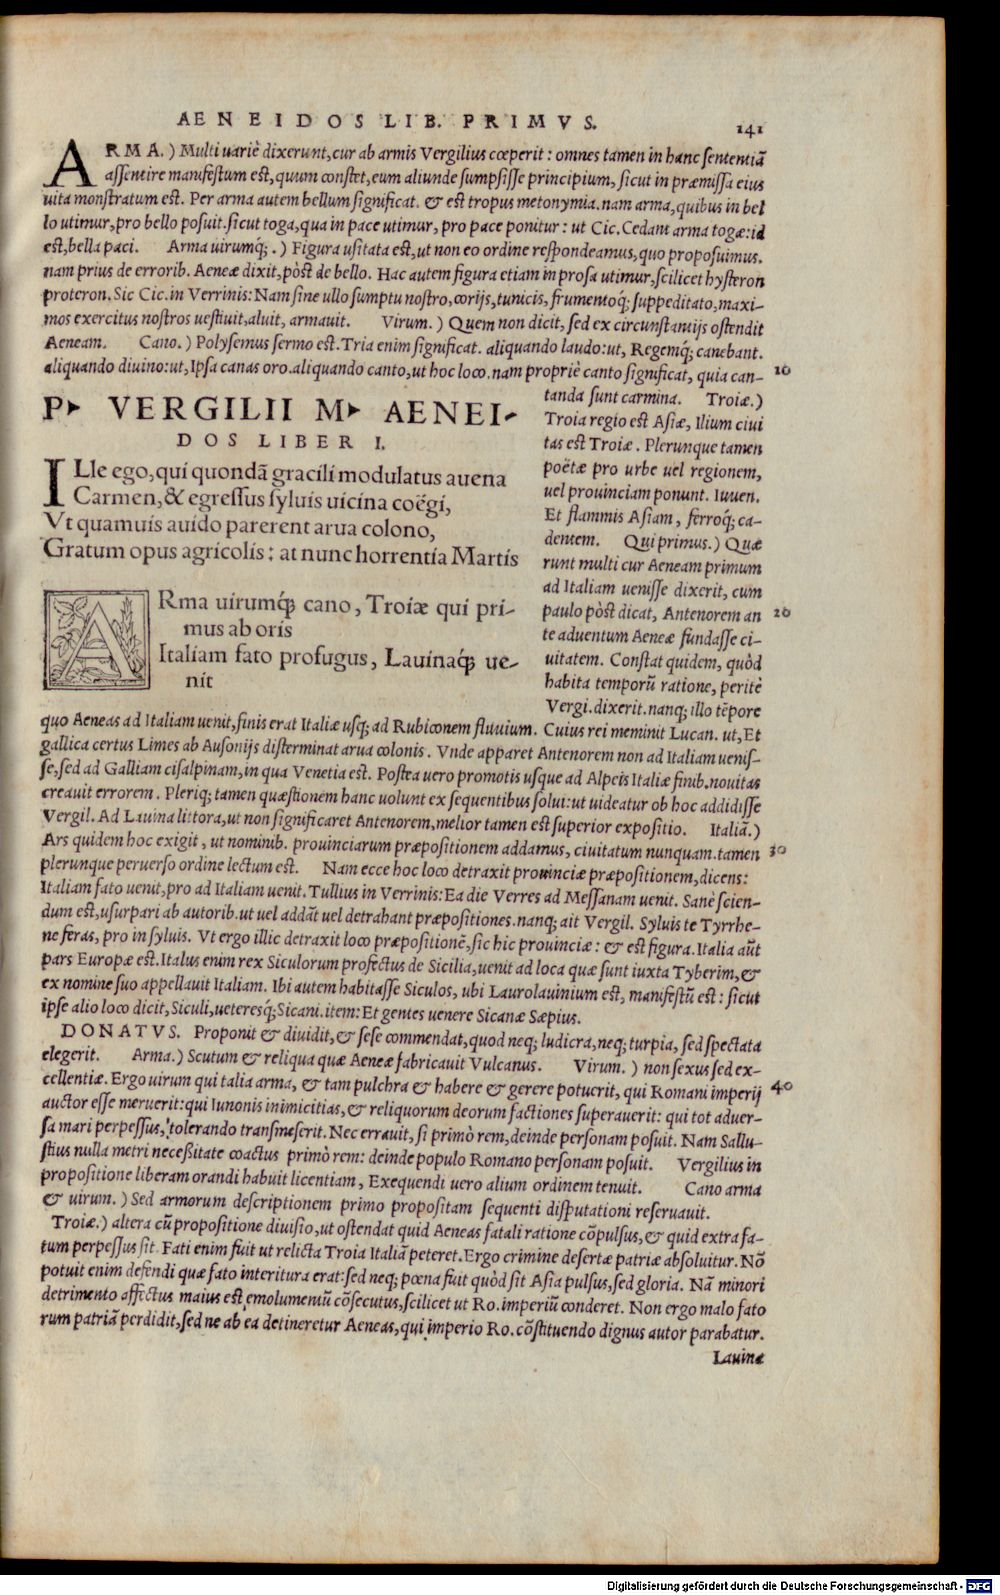 AENEIDOS LIB. PRIMVS. 141
ARMA.) Multi uariè dixerunt, cur ab armis Vergilius cœperit: omnes tamen in hanc sententiã
assentire manifestum est, quum constet, eum aliunde sumpsisse principium, sicut in præmissa eius
uita monstratum est. Per arma autem bellum significat. & est tropus metonymia. nam arma, quibus in bel
lo utimur, pro bello posuit. sicut toga, qua in pace utimur, pro pace ponitur: ut Cic. Cedant arma togæ: id
est, bella paci. Arma uirumq;.) Figura usitata est, ut non eo ordine respondeamus, quo proposuimus.
nam prius de errorib. Aeneæ dixit, pòst de bello. Hac autem figura etiam in prosa utimur, scilicet hysteron
proteron. Sic Cic. in Verrinis: Nam sine ullo sumptu nostro, corijs, tunicis, frumentoq́; suppeditato, maxi-
mos exercitus nostros uestiuit, aluit, armauit. Virum.) Quem non dicit, sed ex circunstantijs ostendit
Aeneam. Cano.) Polysemus sermo est. Tria enim significat. aliquando laudo: ut, Regemq́; canebant.
aliquando diuino: ut, Ipsa canas oro. aliquando canto, ut hoc loco. nam propriè canto significat, quia can- 10
P. VERGILII M. AENEI-
DOS LIBER I.
ILle ego, qui quondã gracili modulatus auena
Carmen, & egressus syluis uicina coëgi,
Vt quamuis auido parerent arua colono,
Gratum opus agricolis: at nunc horrentia Martis
ARma uirumq́; cano, Troiæ qui pri-
mus ab oris
Italiam fato profugus, Lauinaq́; ue-
nit
tanda sunt carmina. Troiæ.)
Troia regio est Asiæ, Ilium ciui
tas est Troiæ. Plerunque tamen
poëtæ pro urbe uel regionem,
uel prouinciam ponunt. Iuuen.
Et flammis Asiam, ferroq́; ca-
dentem. Qui primus.) Quæ
runt multi cur Aeneam primum
ad Italiam uenisse dixerit, cum
paulo pòst dicat, Antenorem an 20
te aduentum Aeneæ fundasse ci-
uitatem. Constat quidem, quòd
habita temporũ ratione, peritè
Vergi. dixerit. nanq; illo tẽpore
quo Aeneas ad Italiam uenit, finis erat Italiæ usq; ad Rubiconem fluuium. Cuius rei meminit Lucan. ut, Et
gallica certus Limes ab Ausonijs disterminat arua colonis. Vnde apparet Antenorem non ad Italiam uenis-
se, sed ad Galliam cisalpinam, in qua Venetia est. Postea uero promotis usque ad Alpeis Italiæ finib. nouitas
creauit errorem. Pleriq; tamen quæstionem hanc uolunt ex sequentibus solui: ut uideatur ob hoc addidisse
Vergil. Ad Lauina littora, ut non significaret Antenorem, melior tamen est superior expositio. Italiã.)
Ars quidem hoc exigit, ut nominib. prouinciarum præpositionem addamus, ciuitatum nunquam. tamen 30
plerunque peruerso ordine lectum est. Nam ecce hoc loco detraxit prouinciæ præpositionem, dicens:
Italiam fato uenit, pro ad Italiam uenit. Tullius in Verrinis: Ea die Verres ad Messanam uenit. Sanè scien-
dum est, usurpari ab autorib. ut uel addãt uel detrahant præpositiones. nanq; ait Vergil. Syluis te Tyrrhe-
ne feras, pro in syluis. Vt ergo illic detraxit loco præpositionẽ, sic hic prouinciæ: & est figura. Italia aũt
pars Europæ est. Italus enim rex Siculorum profectus de Sicilia, uenit ad loca quæ sunt iuxta Tyberim, &
ex nomine suo appellauit Italiam. Ibi autem habitasse Siculos, ubi Laurolauinium est, manifestũ est: sicut
ipse alio loco dicit, Siculi, ueteresq́; Sicani. item: Et gentes uenere Sicanæ Sæpius.
DONATVS. Proponit & diuidit, & sese commendat, quod neq; ludicra, neq; turpia, sed spectata
elegerit. Arma.) Scutum & reliqua quæ Aeneæ fabricauit Vulcanus. Virum.) non sexus sed ex-
cellentiæ. Ergo uirum qui talia arma, & tam pulchra & habere & gerere potuerit, qui Romani imperij 40
auctor esse meruerit: qui Iunonis inimicitias, & reliquorum deorum factiones superauerit: qui tot aduer-
sa mari perpessus, tolerando transmeserit. Nec errauit, si primò rem, deinde personam posuit. Nam Sallu-
stius nulla metri necessitate coactus primò rem: deinde populo Romano personam posuit. Vergilius in
propositione liberam orandi habuit licentiam, Exequendi uero alium ordinem tenuit. Cano arma
& uirum.) Sed armorum descriptionem primo propositam sequenti disputationi reseruauit.
Troiæ.) altera cũ propositione diuisio, ut ostendat quid Aeneas fatali ratione cõpulsus, & quid extra fa-
tum perpessus sit. Fati enim fuit ut relicta Troia Italiã peteret. Ergo crimine desertæ patriæ absoluitur. Nõ
potuit enim defendi quæ fato interitura erat: sed neq; pœna fuit quòd sit Asia pulsus, sed gloria. Nã minori
detrimento affectus maius est emolumentũ cõsecutus, scilicet ut Ro. imperiũ conderet. Non ergo malo fato
rum patriã perdidit, sed ne ab ea detineretur Aeneas, qui imperio Ro. cõstituendo dignus autor parabatur.
Lauinæ
Digitalisierung gefördert durch die Deutsche Forschungsgemeinschaft - DFG